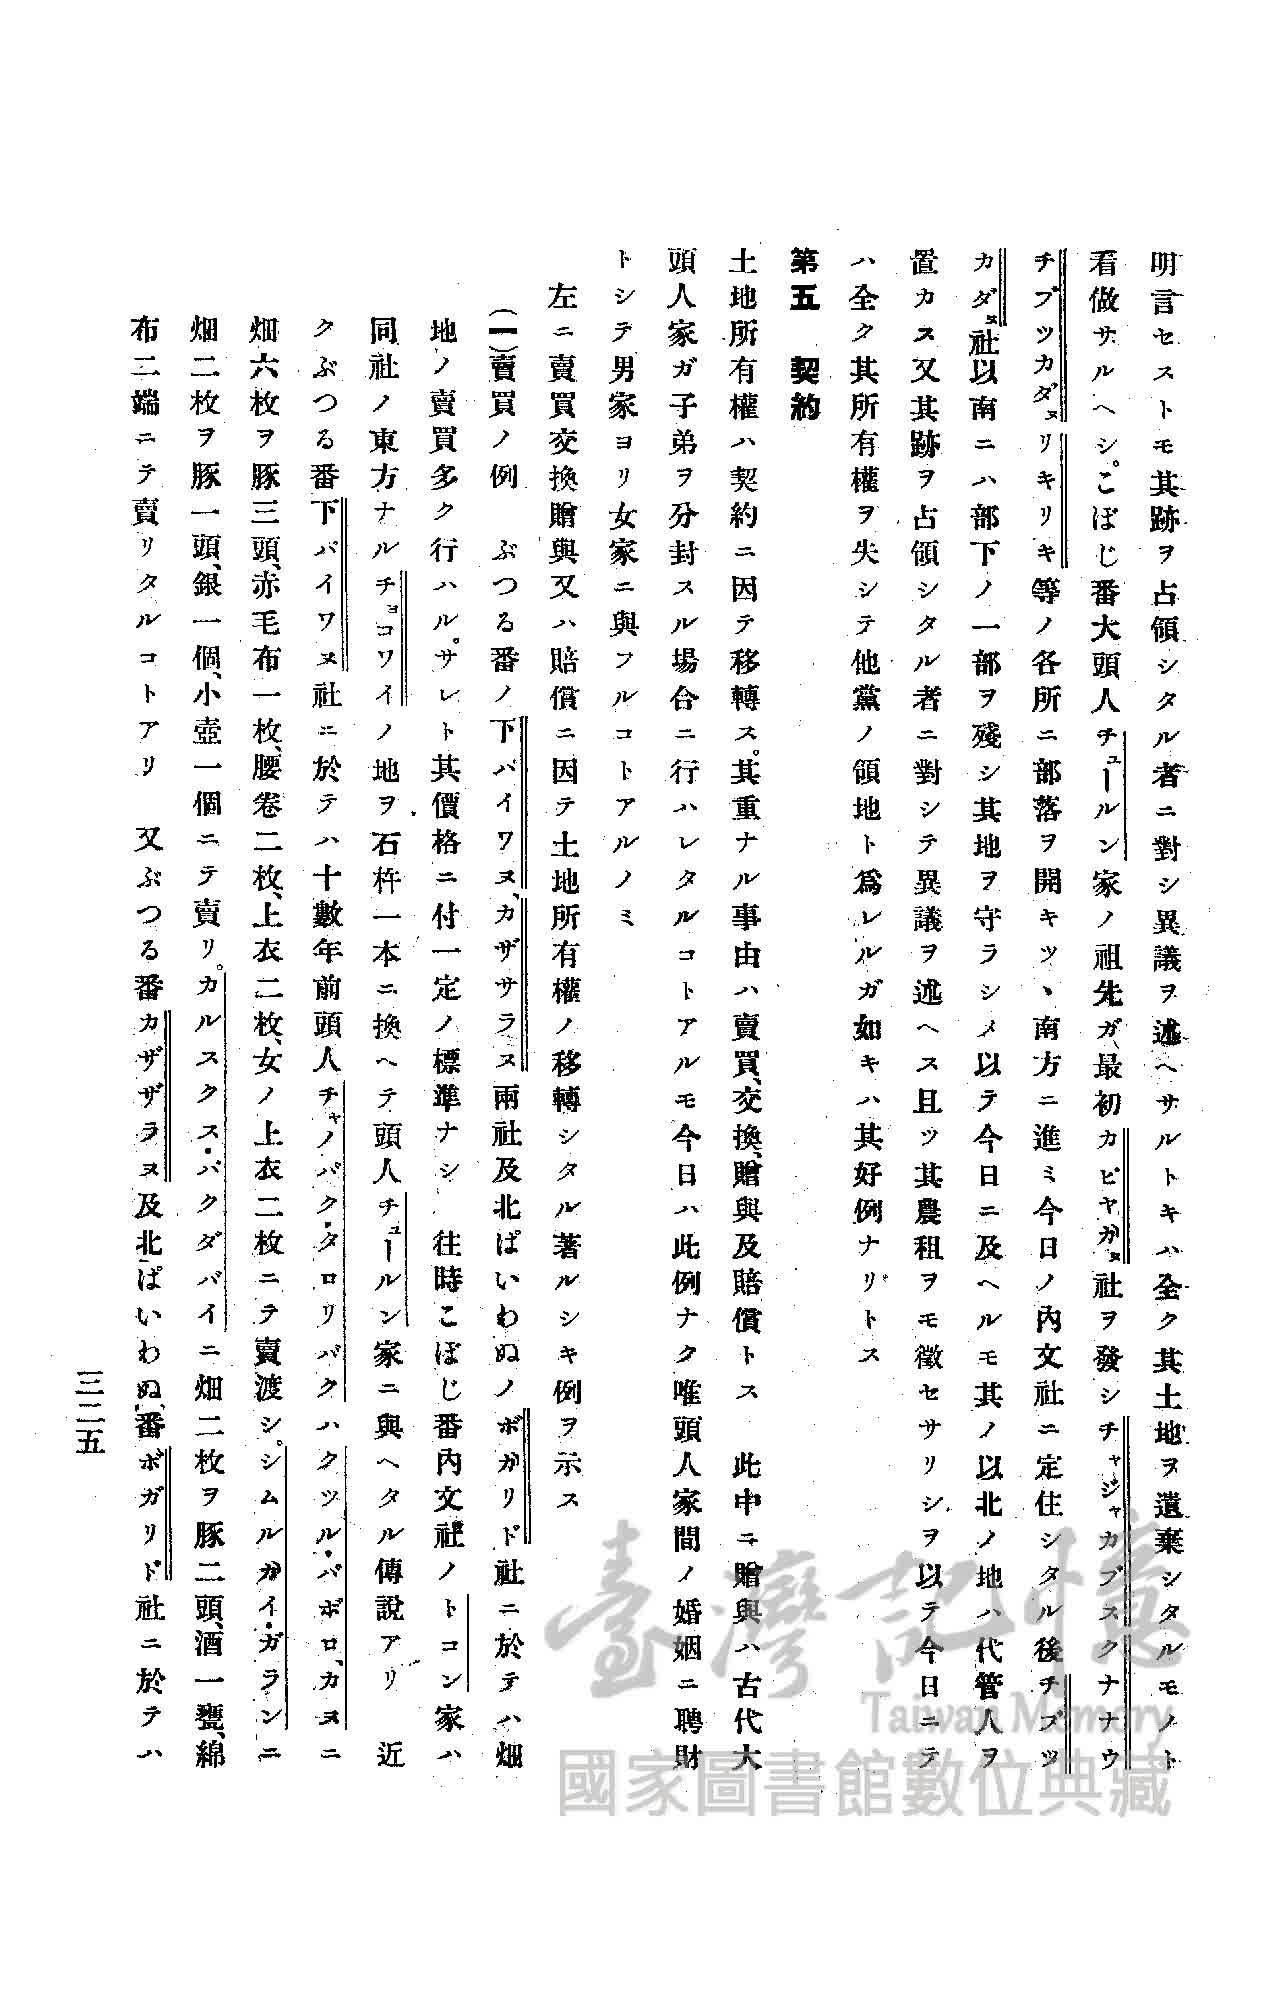 明言セストモ其跡ヲ占領シタル者ニ對シ異議ヲ述ヘサルトキハ全ク其土地ヲ遺棄シタルモノト
看做サルヘシ。こぼじ番大頭人チュールン家ノ祖先ガ最初カピヤガヌ社ヲ發シチャジャカブスクナナウ
チブツカダヌリキリキ等ノ各所ニ部落ヲ開キツヽ南方ニ進ミ今日ノ內文社ニ定住シタル後チブツ
カダヌ社以南ニハ部下ノ一部ヲ殘シ其地ヲ守ラシメ以テ今日ニ及ヘルモ其ノ以北ノ地ハ代管人ヲ
置カス又其跡ヲ占領シタル者ニ對シテ異議ヲ述ヘス且ツ其農租ヲモ徵セサリシヲ以テ今日ニテ
ハ全ク其所有權ヲ失シテ他黨ノ領地ト爲レルガ如キハ其好例ナリトス
第五 契約
土地所有權ハ契約ニ因テ移轉ス。其重ナル事由ハ賣買、交換、贈與及賠償トス 此中ニ贈與ハ古代大
頭人家ガ子弟ヲ分封スル場合ニ行ハレタルコトアルモ今日ハ此例ナク唯頭人家間ノ婚姻ニ聘財
トシテ男家ヨリ女家ニ與フルコトアルノミ
左ニ賣買交換贈與又ハ賠償ニ因テ土地所有權ノ移轉シタル著ルシキ例ヲ示ス
(一)賣買ノ例 ぶつる番ノ下パイワヌ、カザサラヌ兩社及北ぱいわぬノボガリド社ニ於テハ畑
地ノ賣買多ク行ハル。サレト其價格ニ付一定ノ標準ナシ 往時こぼじ番內文社ノトコン家ハ
同社ノ東方ナルチョコワイノ地ヲ石杵一本ニ換ヘテ頭人チュールン家ニ與ヘタル傳說アリ 近
クぶつる番下パイワヌ社ニ於テハ十數年前頭人チャノバク・タロリバクハクツル・バボロ、カヌニ
畑六枚ヲ豚三頭、赤毛布一枚、腰卷二枚、上衣二枚、女ノ上衣二枚ニテ賣渡シ。シムルガイ・ガランニ
畑二枚ヲ豚一頭、銀一個、小壺一個ニテ賣リ。カルスクス・バクダバイニ畑二枚ヲ豚二頭、酒一甕、綿
布二端ニテ賣リタルコトアリ 又ぶつる番カザザラヌ及北ぱいわぬ番ボガリド社ニ於テハ
三二五
臺灣記憶
Taiwan Memory
國家圖書館數位典藏